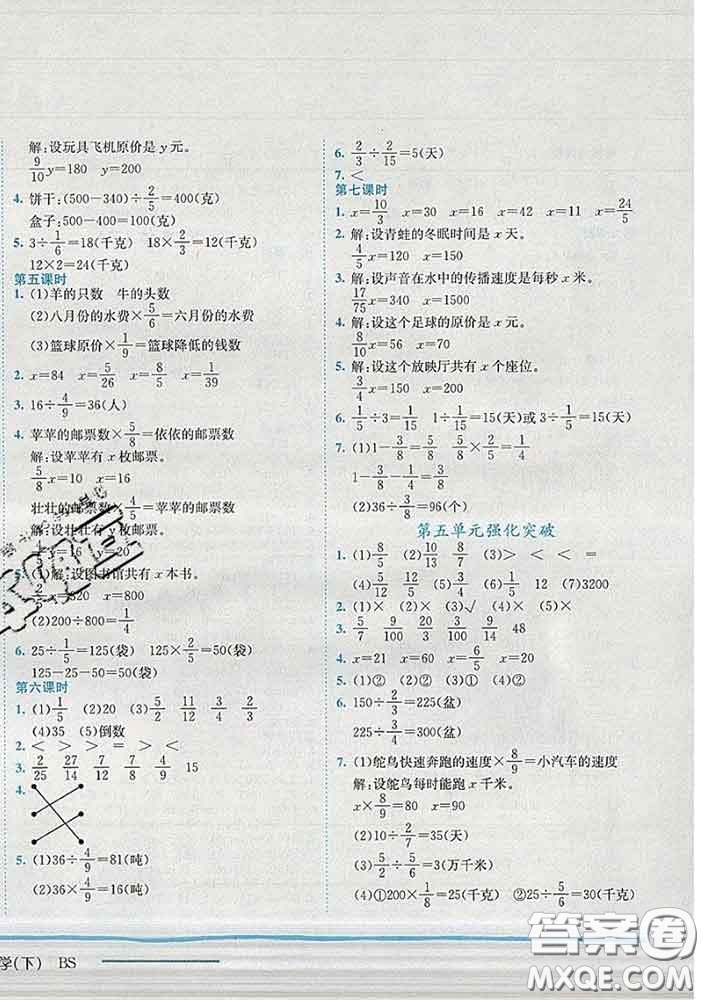 解:设玩具飞机原价是 y 元。
9/10y=180 y=200
4. 饼干:(500-340)÷2/5=400(克)
盒子:500-400=100(克)
5. 3÷1/6=18(千克) 18×2/3=12(千克)
12×2=24(千克)
第五课时
1. (1)羊的只数 牛的头数
(2)八月份的水费×5/6=六月份的水费
(3)篮球原价×1/9=篮球降低的钱数
2. x=84 x=5/26 x=8/5 x=1/39
3. 16÷4/9=36(人)
4. 苹苹的邮票数×5/8=依依的邮票数
解:设苹苹有 x 枚邮票。
5/8x=10 x=16
壮壮的邮票数×4/5=苹苹的邮票数
解:设壮壮有 y 枚邮票。
x=16 y=20
解:设图书馆共有 x 本书。
x=320 x=800
(2)200÷800=1/4
6. 25÷1/5=125(袋) 125×2/5=50(袋)
125-25-50=50(袋)
第六课时
1. (1)1/5 (2)20 (3)5/2 11/12 3/4 2/9
(4)35 (5)倒数
2. < > > = > <
3. 2/25 27/14 7/12 7/8 4/9 15
4.
5. (1)36÷4/9=81(吨)
(2)36×4/9=16(吨)
学(下) BS
6. 2/3÷2/15=5(天)
7. <
第七课时
1. x=10/3 x=30 x=16 x=42 x=11 x=24/5
2. 解:设青蛙的冬眠时间是 x 天。
4/5x=120 x=150
3. 解:设声音在水中的传播速度是每秒 x 米。
17/75x=340 x=1500
4. 解:设这个足球的原价是 x 元。
8/10x=56 x=70
5. 解:设这个放映厅共有 x 个座位。
3/4x=150 x=200
6. 1/5÷3=1/15 1÷1/15=15(天)或 3÷1/5=15(天)
7. (1)1-3/8=5/8 5/8×2/5=1/4
1-3/8-1/4=3/8
(2)36÷3/8=96(个)
第五单元强化突破
1. (1)8/5 (2)10/13 8/7 (3)> < < =
(4)5/12 (5)1/15 (6)5/12 (7)3200
2. (1)× (2)× (3)√ (4)× (5)×
3. 5/7 9/100 20/3 3/100 9/4 48
4. x=21 x=60 x=4/5 x=14
5. (1)② (2)② (3)① (4)① (5)②
6. 150÷2/3=225(盆)
225÷3/4=300(盆)
7. (1)鸵鸟快速奔跑的速度×8/9=小汽车的速度
解:设鸵鸟每时能跑 x 千米。
x×8/9=80 x=90
(2)10÷2/7=35(天)
(3)5/2÷5/6=3(万千米)
(4)①200×1/8=25(千克) ②25÷5/6=30(千克)
答案圈
MXQE.COM